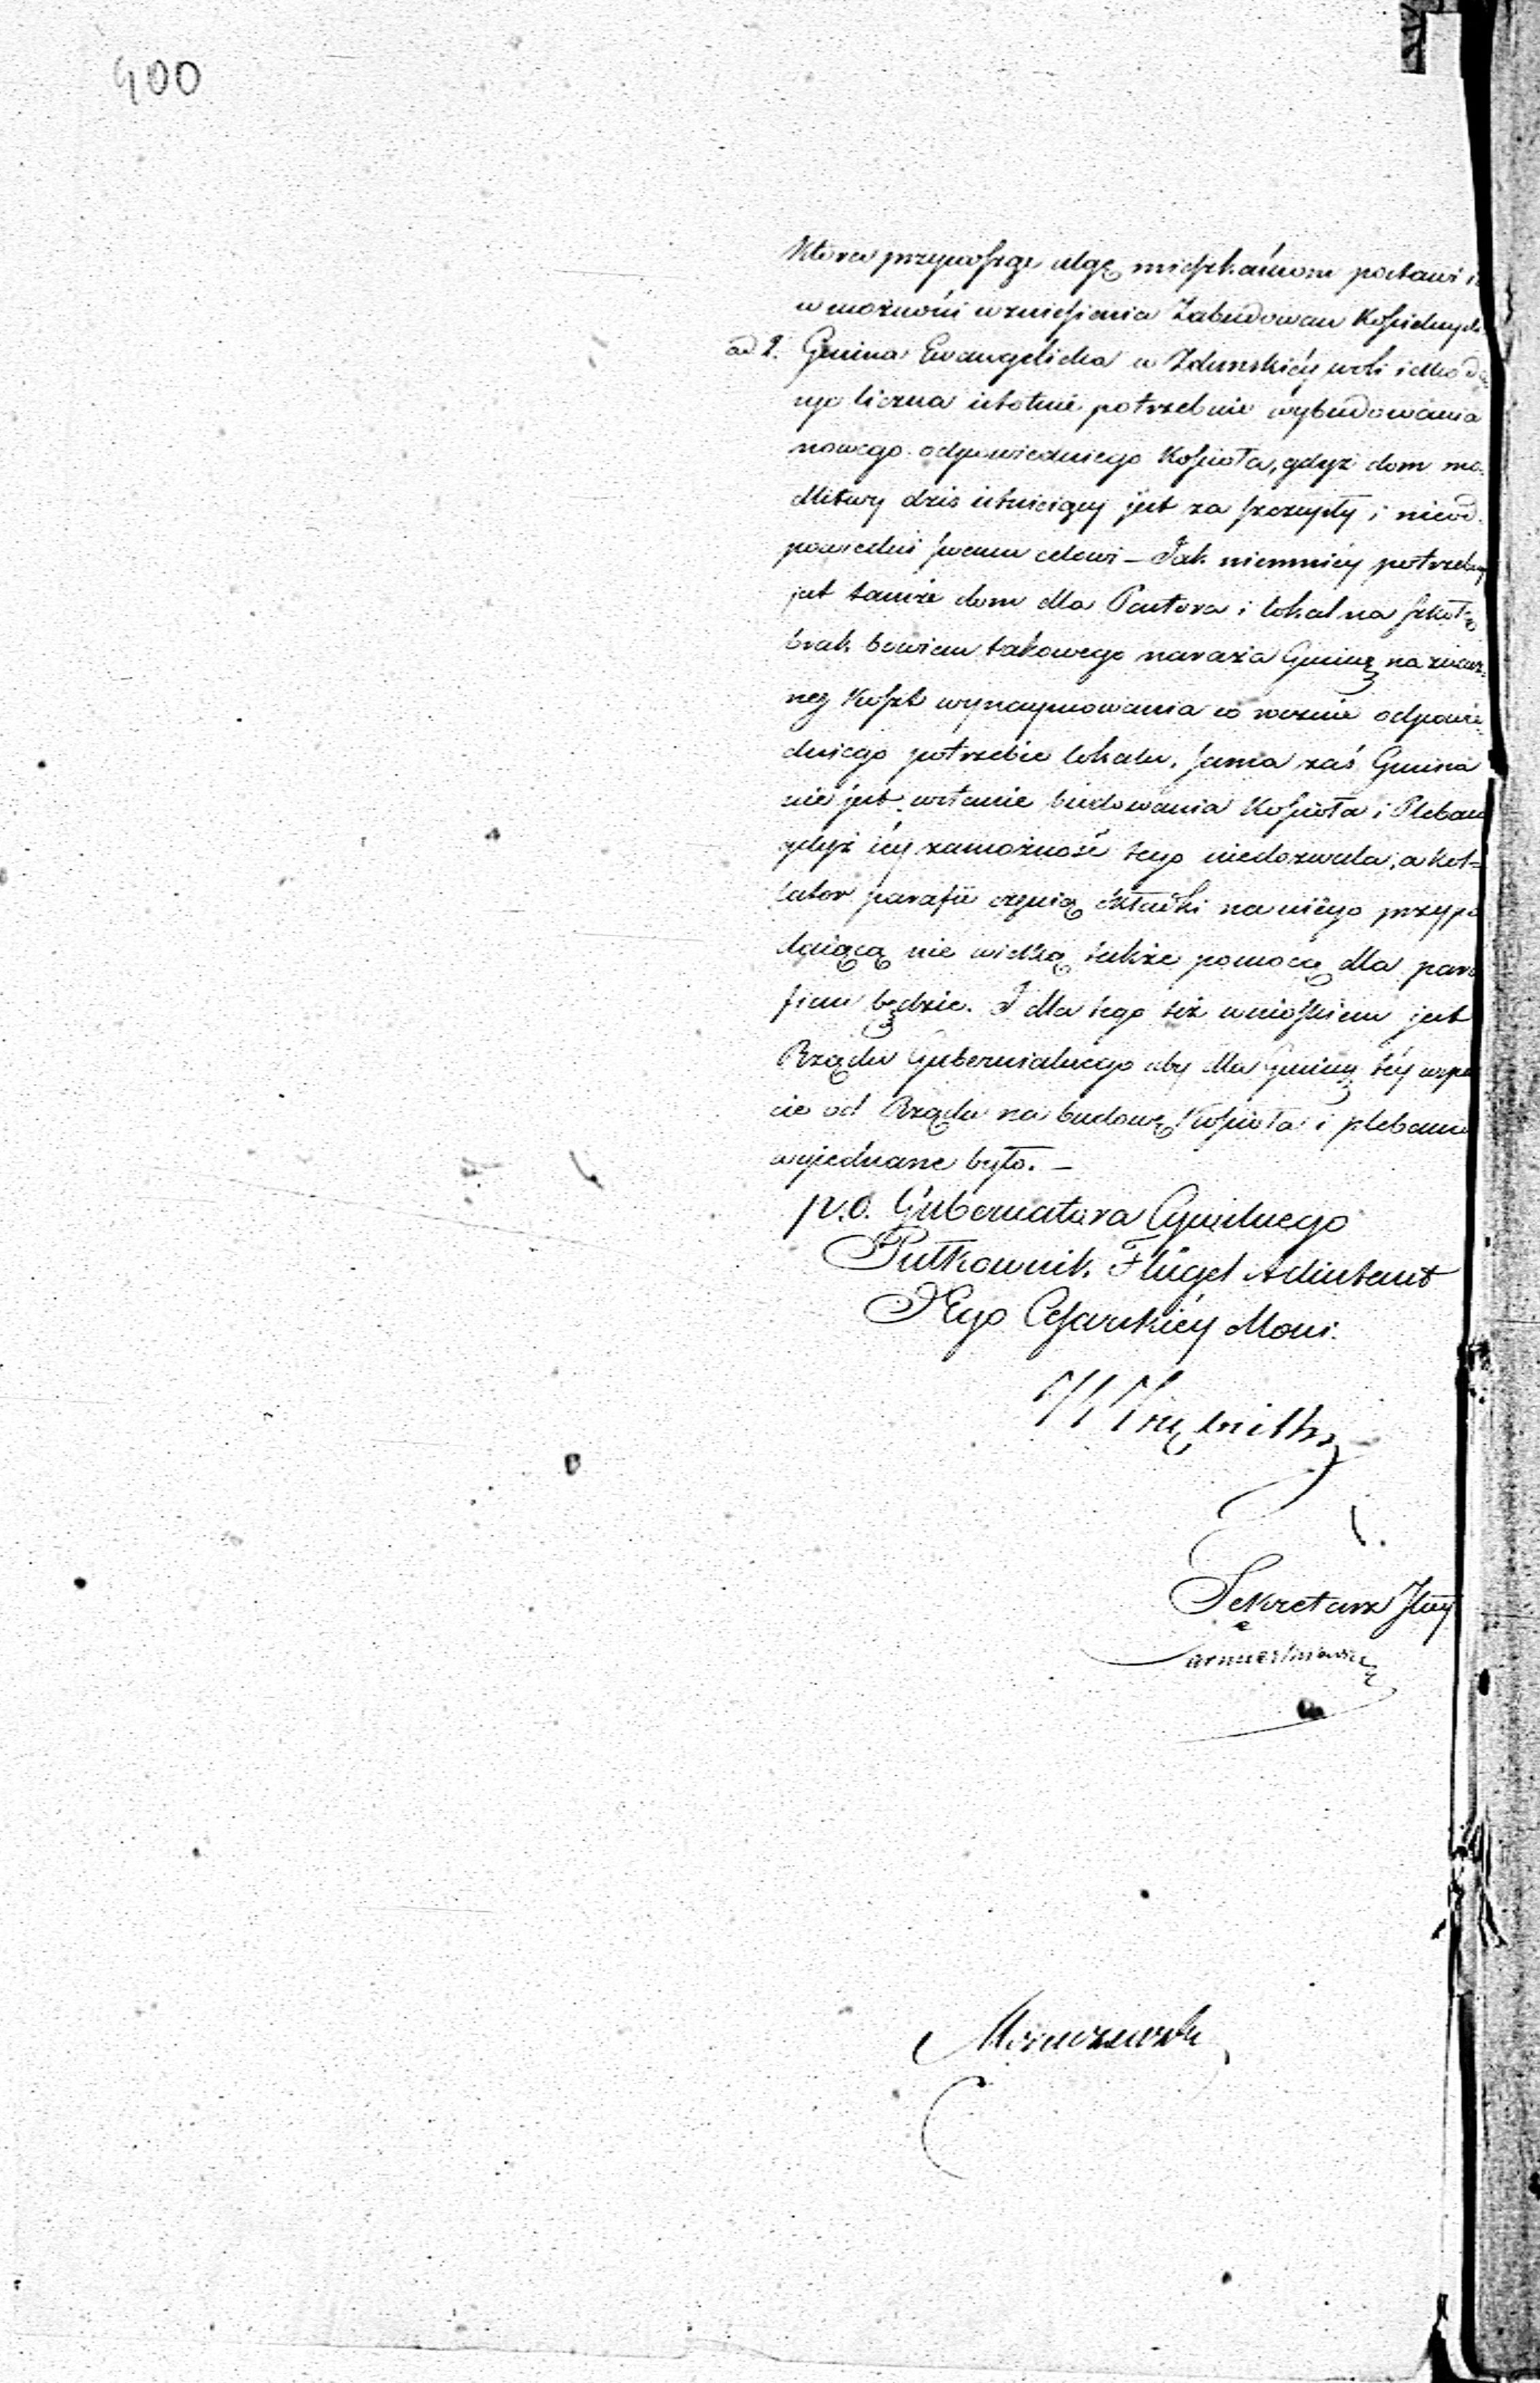 400
która przynosząc ulgę mieszkańcom postawi i
w możności wzniesienia Zabudowań Kościelnych
ad 2. Gmina Ewangelicka w Zduńskiéy woli
liczna istotnie potrzebuie wybudowania
nowego odpowiedniego Kościoła, gdyż dom mo-
dlitwy dziś istnieiący jest za szczupły i nieod-
powiedni swemu celowi – Jak niemniéy potrzebny
jest tamże dom dla Pastora i lokal na szkołę
brak bowiem takowego naraża Gminę na znacz-
ny koszt wynaymowania co rocznie odpowie
dniego potrzebie lokalu, sama zaś Gmina
nie jest w stanie budowania Kościoła i Pleban
gdyż iéy zamożność tego niedozwala, a kol-
lator parafii część składki na niego przypa
daiącą nie wielką także pomocą dla para
fian będzie. I dla tego też wnioskiem jest
Rządu Gubernialnego aby dla Gminy téy wspar
cie od Rządu na budowę Kościoła i plebanii
wyiednane było. –
p.o. Gubernatora Cywilnego
Pułkownik Flügel Adiutant
JEgo Cesarskiéy Mości.
Sekretarz Jlny